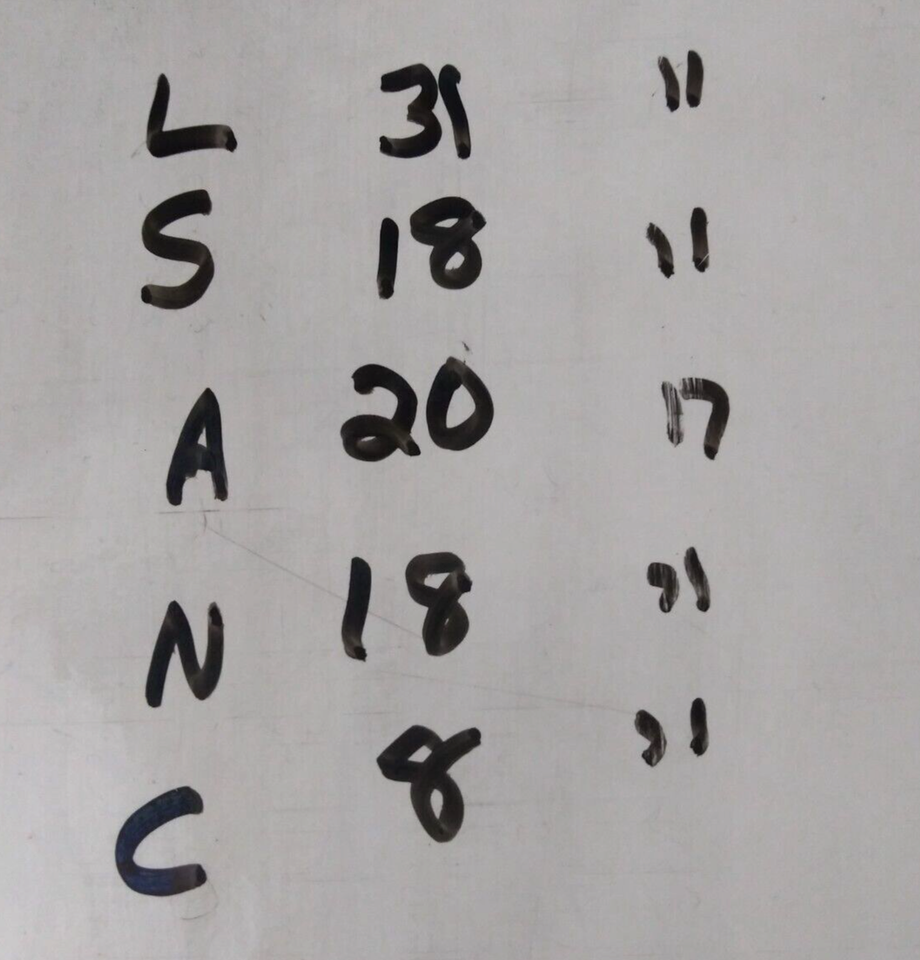 L 31 "
S 18 "
A 20 "
N 18 "
C 8 "